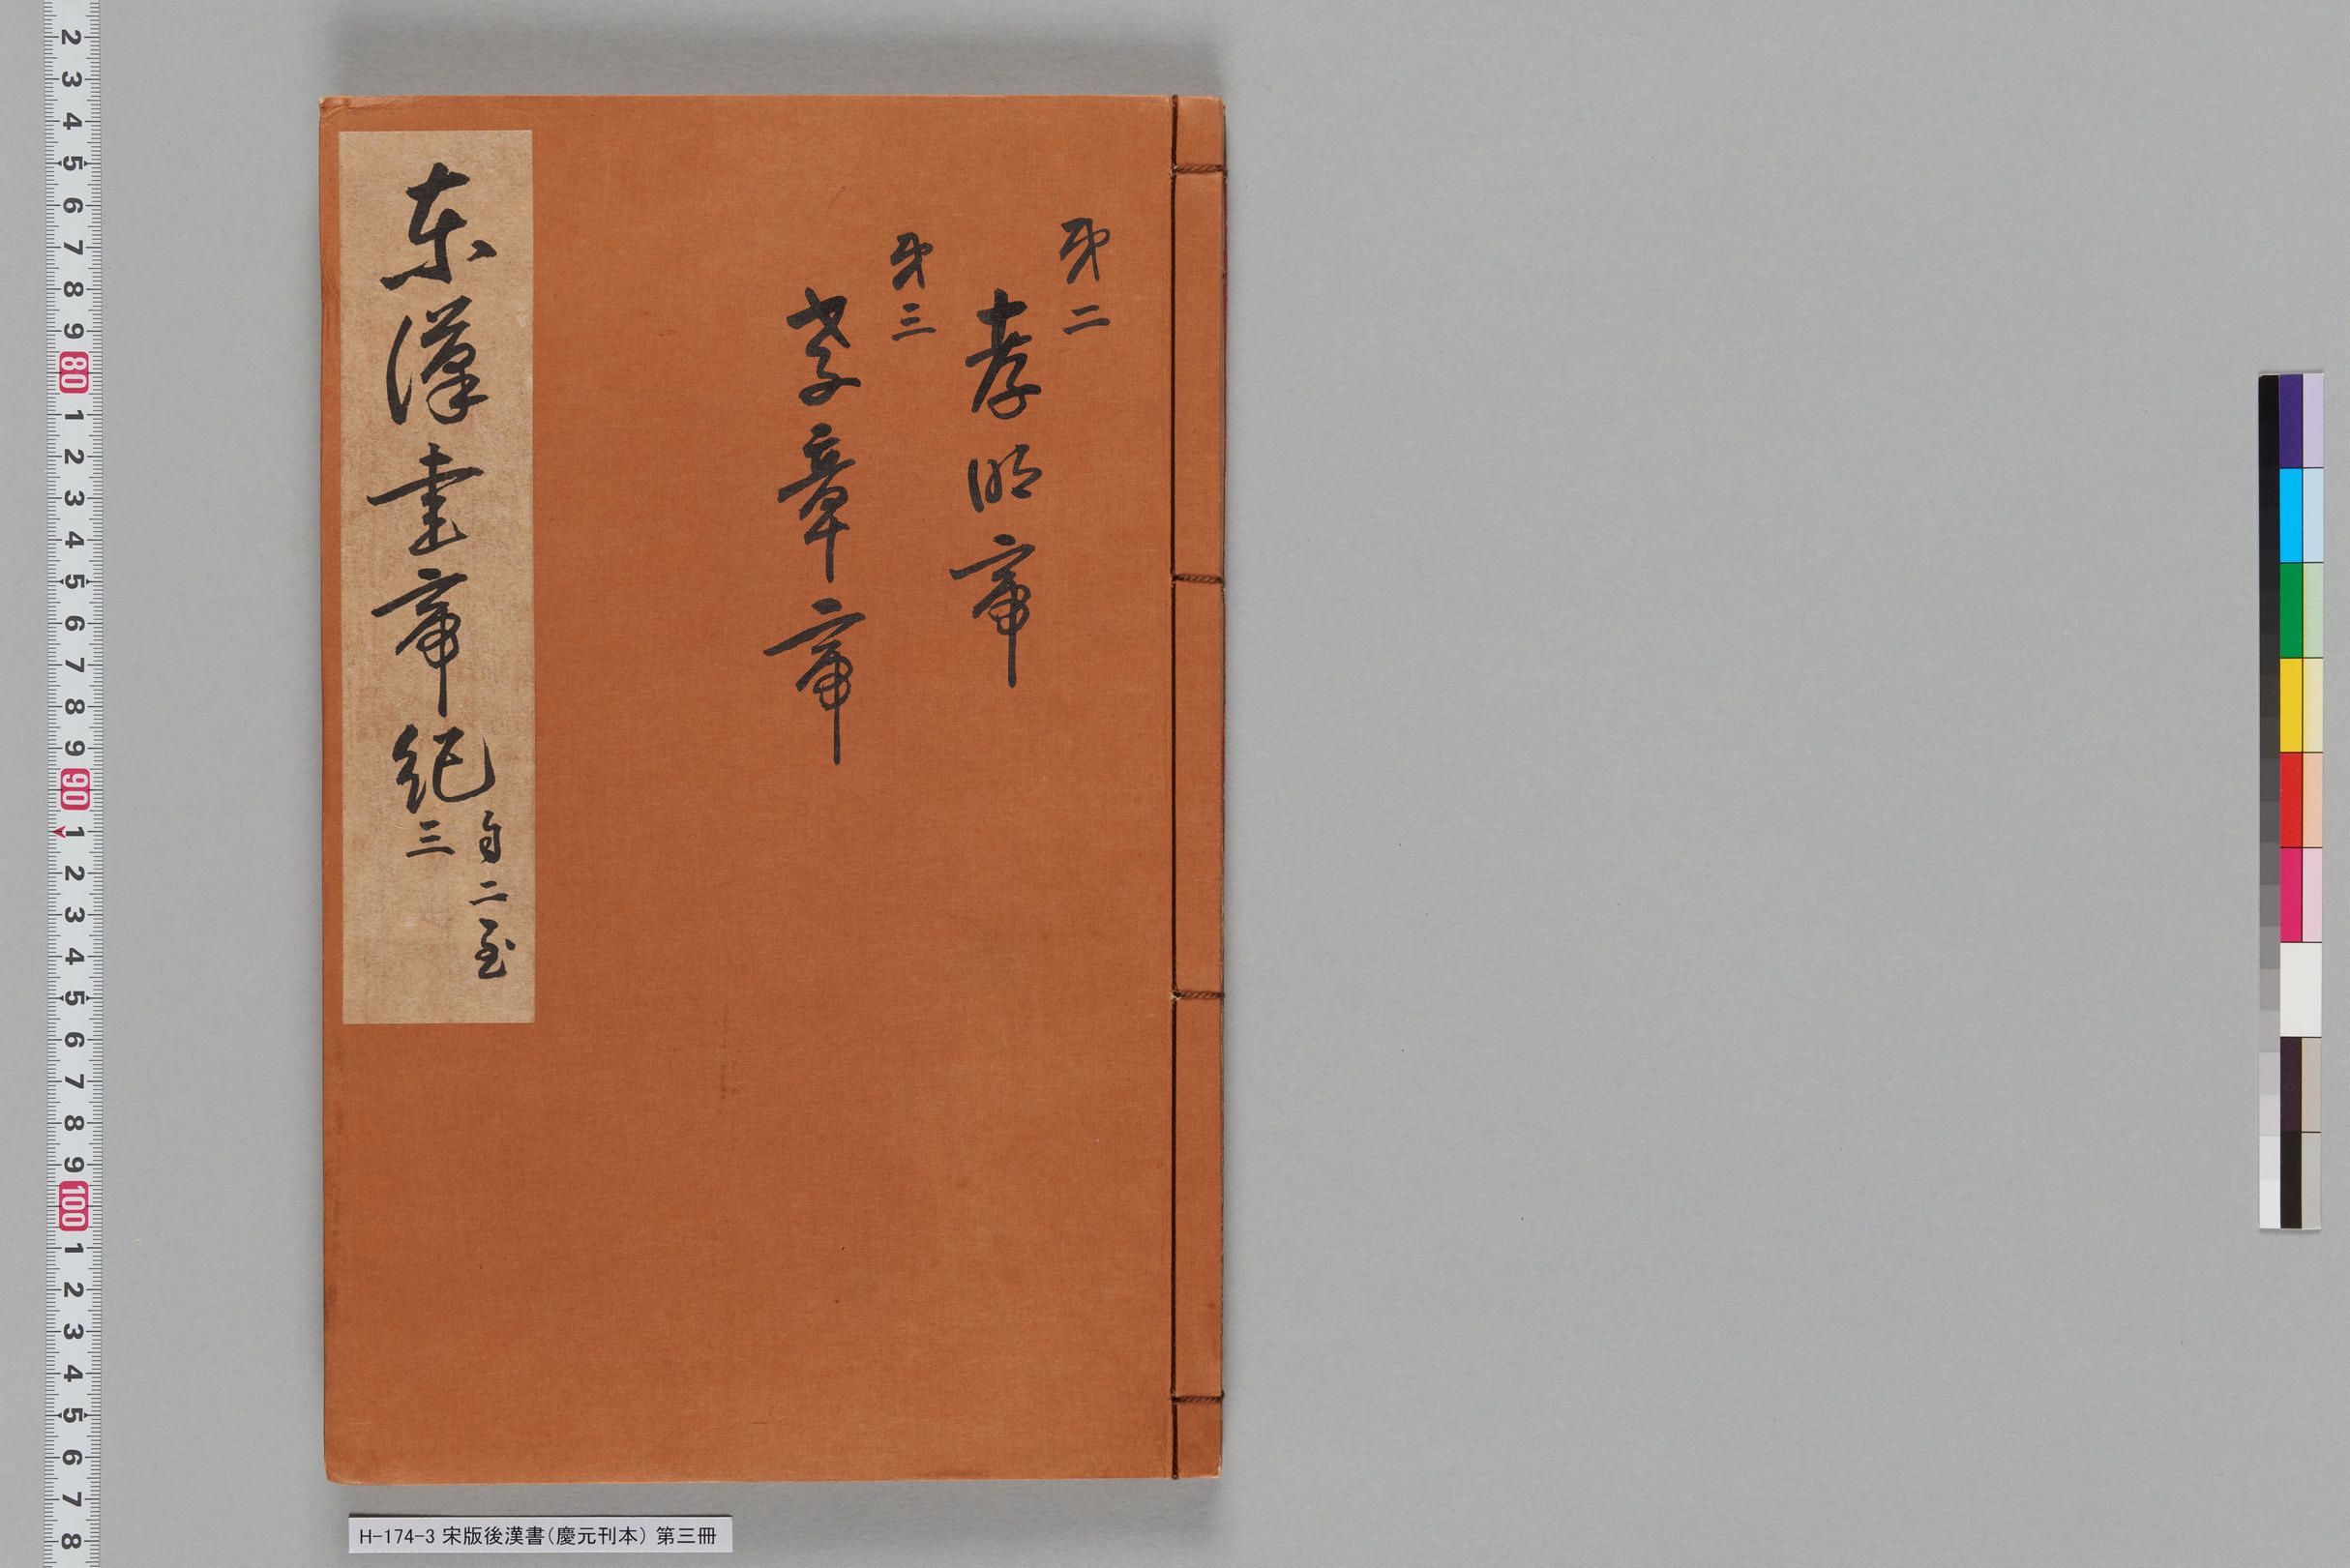 第二
孝明帝
第三
孝章帝
東漢書帝紀 自二至
三
H-174-3 宋版後漢書(慶元刊本) 第三冊
2 3 4 5 6 7 8 9 80 1 2 3 4 5 6 7 8 9 90 1 2 3 4 5 6 7 8 9 100 1 2 3 4 5 6 7 8